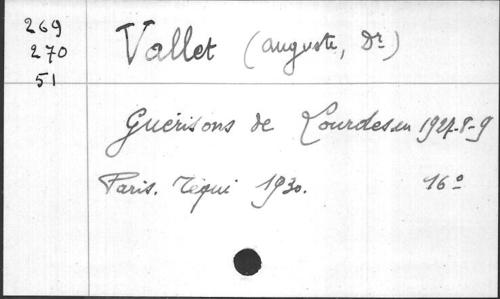 269
270
51
Vallet (Auguste, Dr)
Guérisons de Lourdes en 1927-8-9
Paris. Téqui 1930. 16°